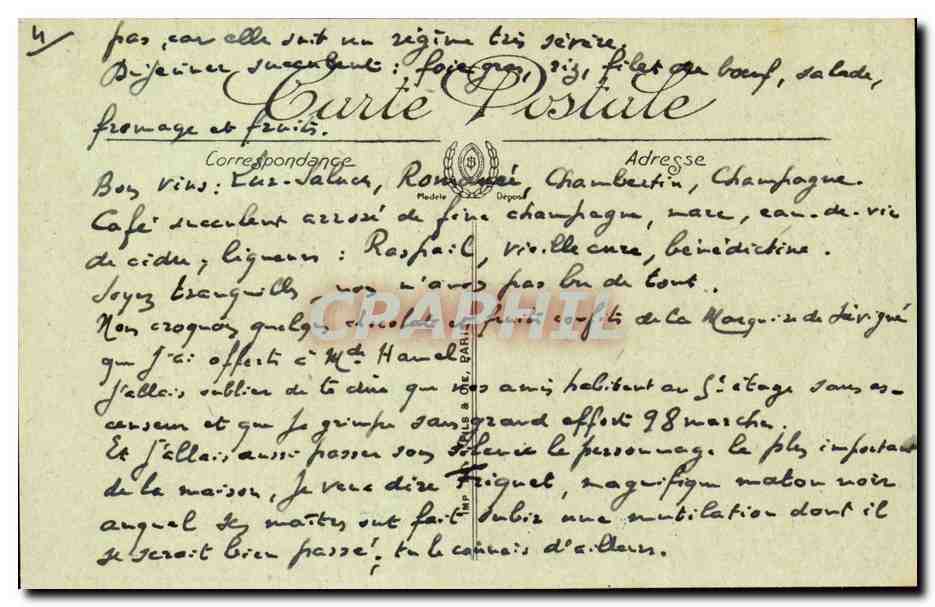 4/
pas, car elle suit un régime très sévère.
Déjeuner succulent : foie gras, riz, filet de bœuf, salade,
Carte Postale
fromage et fruits.
Correspondance
Adresse
Bons vins : Lur-Saluces, Romanée, Chambertin, Champagne.
Modèle Déposé
Café succulent arrosé de fine champagne, marc, eau-de-vie
de cidre ; liqueurs : Raspail, vieille cure, bénédictine.
Soyez tranquilles, nous n'avons pas bu de tout.
GRAPHIL
Nous croquons quelques chocolats et fruits confits de la Marquise de Sévigné
que j'ai offerts à Mde Hamel
J'allais oublier de te dire que nos amis habitent au 5e étage sans as-
censeur et que je grimpe sans grand effort 98 marches.
Et j'allais aussi passer sous silence le personnage le plus important
de la maison, je veux dire Friquet, magnifique matou noir
auquel ses maîtres ont fait subir une mutilation dont il
se serait bien passé ; tu le connais d'ailleurs.
IMP. & CIE, PARIS